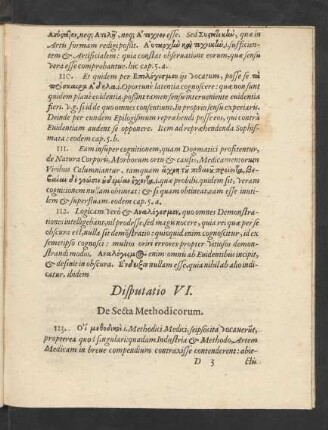 esse. Sed quæ in
Artis formam redigi possit. i. sufficientem & Artificialem: quia constat observatione eorum, quæ sensu
vera esse comprobantur. hic cap. 5. a.
Et quidem per Epilogismum vocatum, posse
i. Oportunè latentia cognoscere: quæ non sunt
quidem planè evidentia, possunt tamen sensu interveniente evidentia
fieri. V.g. si id de quo omnes consentiunt, In propriis sensu experiaris.
Deinde per eundem Epilogismum reprehendi posse eos, qui contrà
Evidentiam audent se opponere. Item ad reprehendenda Sophismata: eodem cap. 5. b.
111. Eam insuper cognitionem, quam Dogmatici profitentur,
de Natura Corporis, Morborum ortu & causis, Medicamentorum
Viribus Calumniantur, tamquam
i. quæ probili, quidem sit, Veram
cognitionem nullam obtineat: & si quam obtineat, eam esse inutilem & superfluam. eodem cap. 5. a.
112. Logicam verò & Αναλόγισμον, quo omnes Demonstrationes intelligebant, nil prodesse sed magis nocere, quia rei quæ per se
obscura est, nulla sit demonstratio: quicquid enim cognoscitur, id ex
semetipso cognosci: multos oriri errores propter vitiosum demonstrandi modum. Αναλόγισμον enim omnem ab Evidentibus incipit,
& desinit in obscura. Ενδειξιν nullam esse. quia nihil ab alio indicatur. ibidem
Disputatio VI.
De Secta Methodicorum.
113. Οἱ μεθοδικοὶ i. Methodici Medici, seipsos ita vocaverunt,
propterea quod singulari quadam Industria & Methodo, Artem
Medicam in breve compendium contraxisse contenderent: abie-
D 3 cti